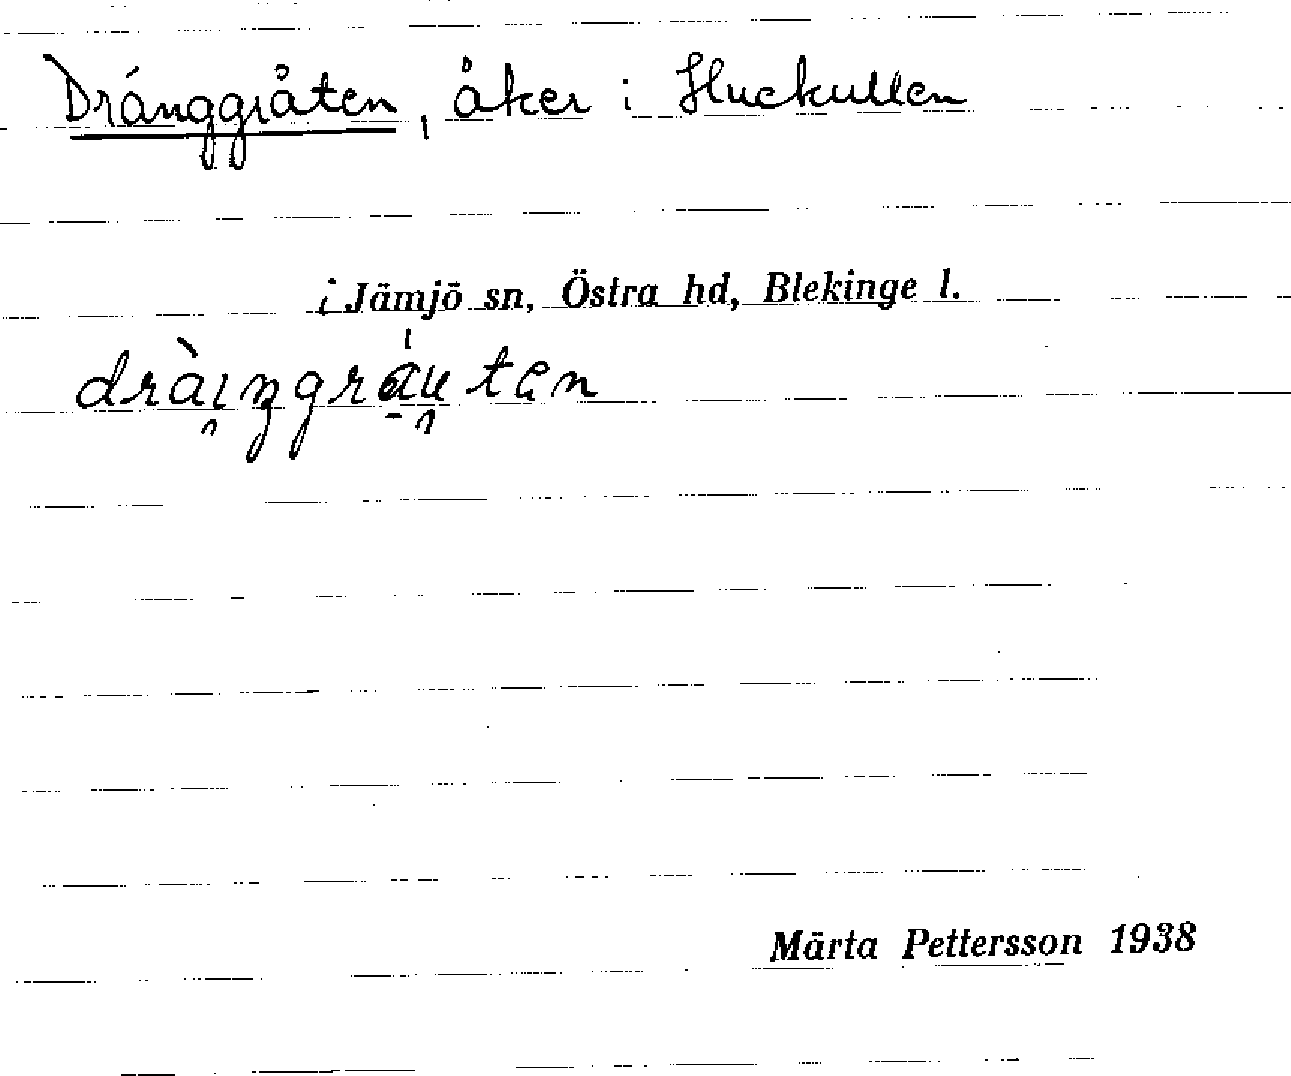 Dränggråten, åker i Huckullen
i Jämjö sn, Östra hd, Blekinge l.
Märta Pettersson 1938